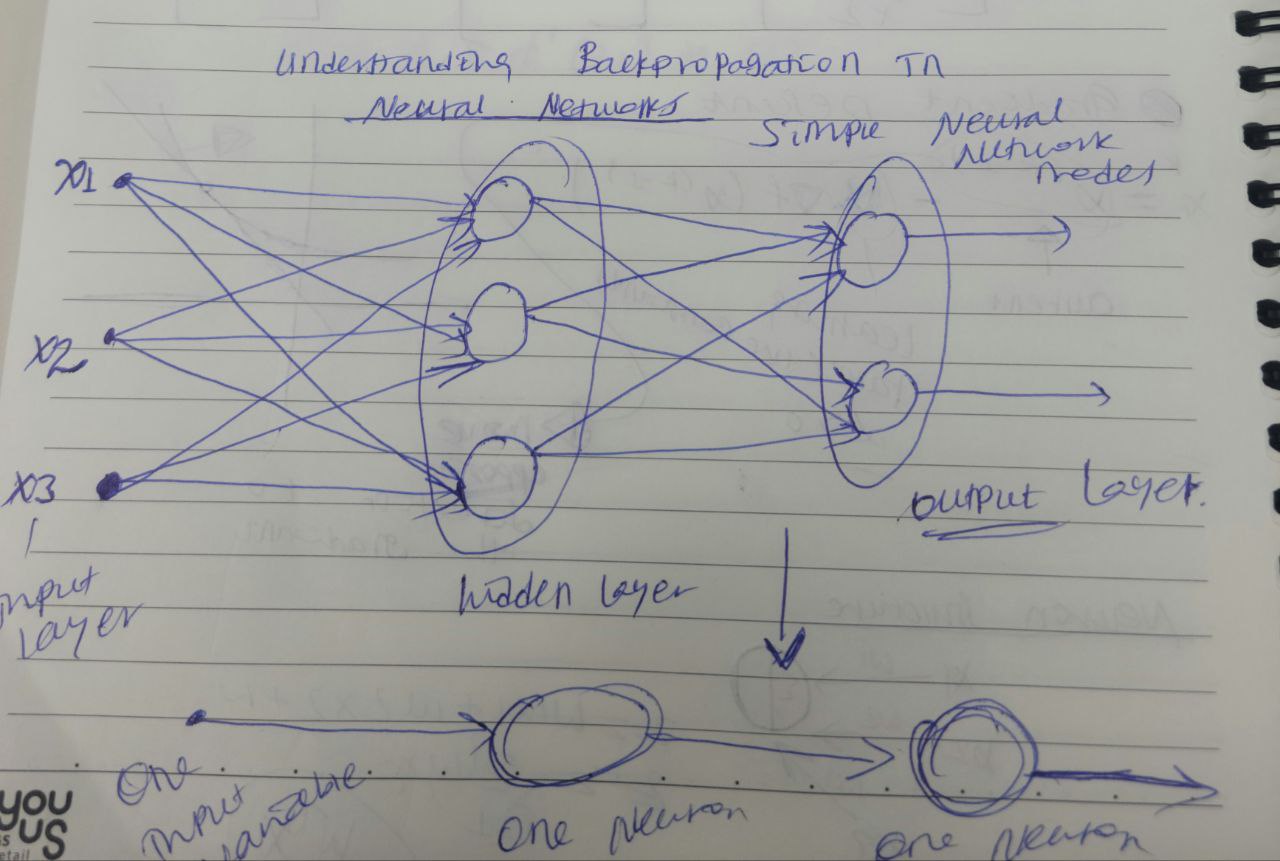 Understanding Backpropagation In
Neural Networks
Simple Neural
Network
Model
x1
x2
x3
Input
Layer
hidden layer
output Layer.
One
Input
Variable
One Neuron
One Neuron
YOU
US
etail